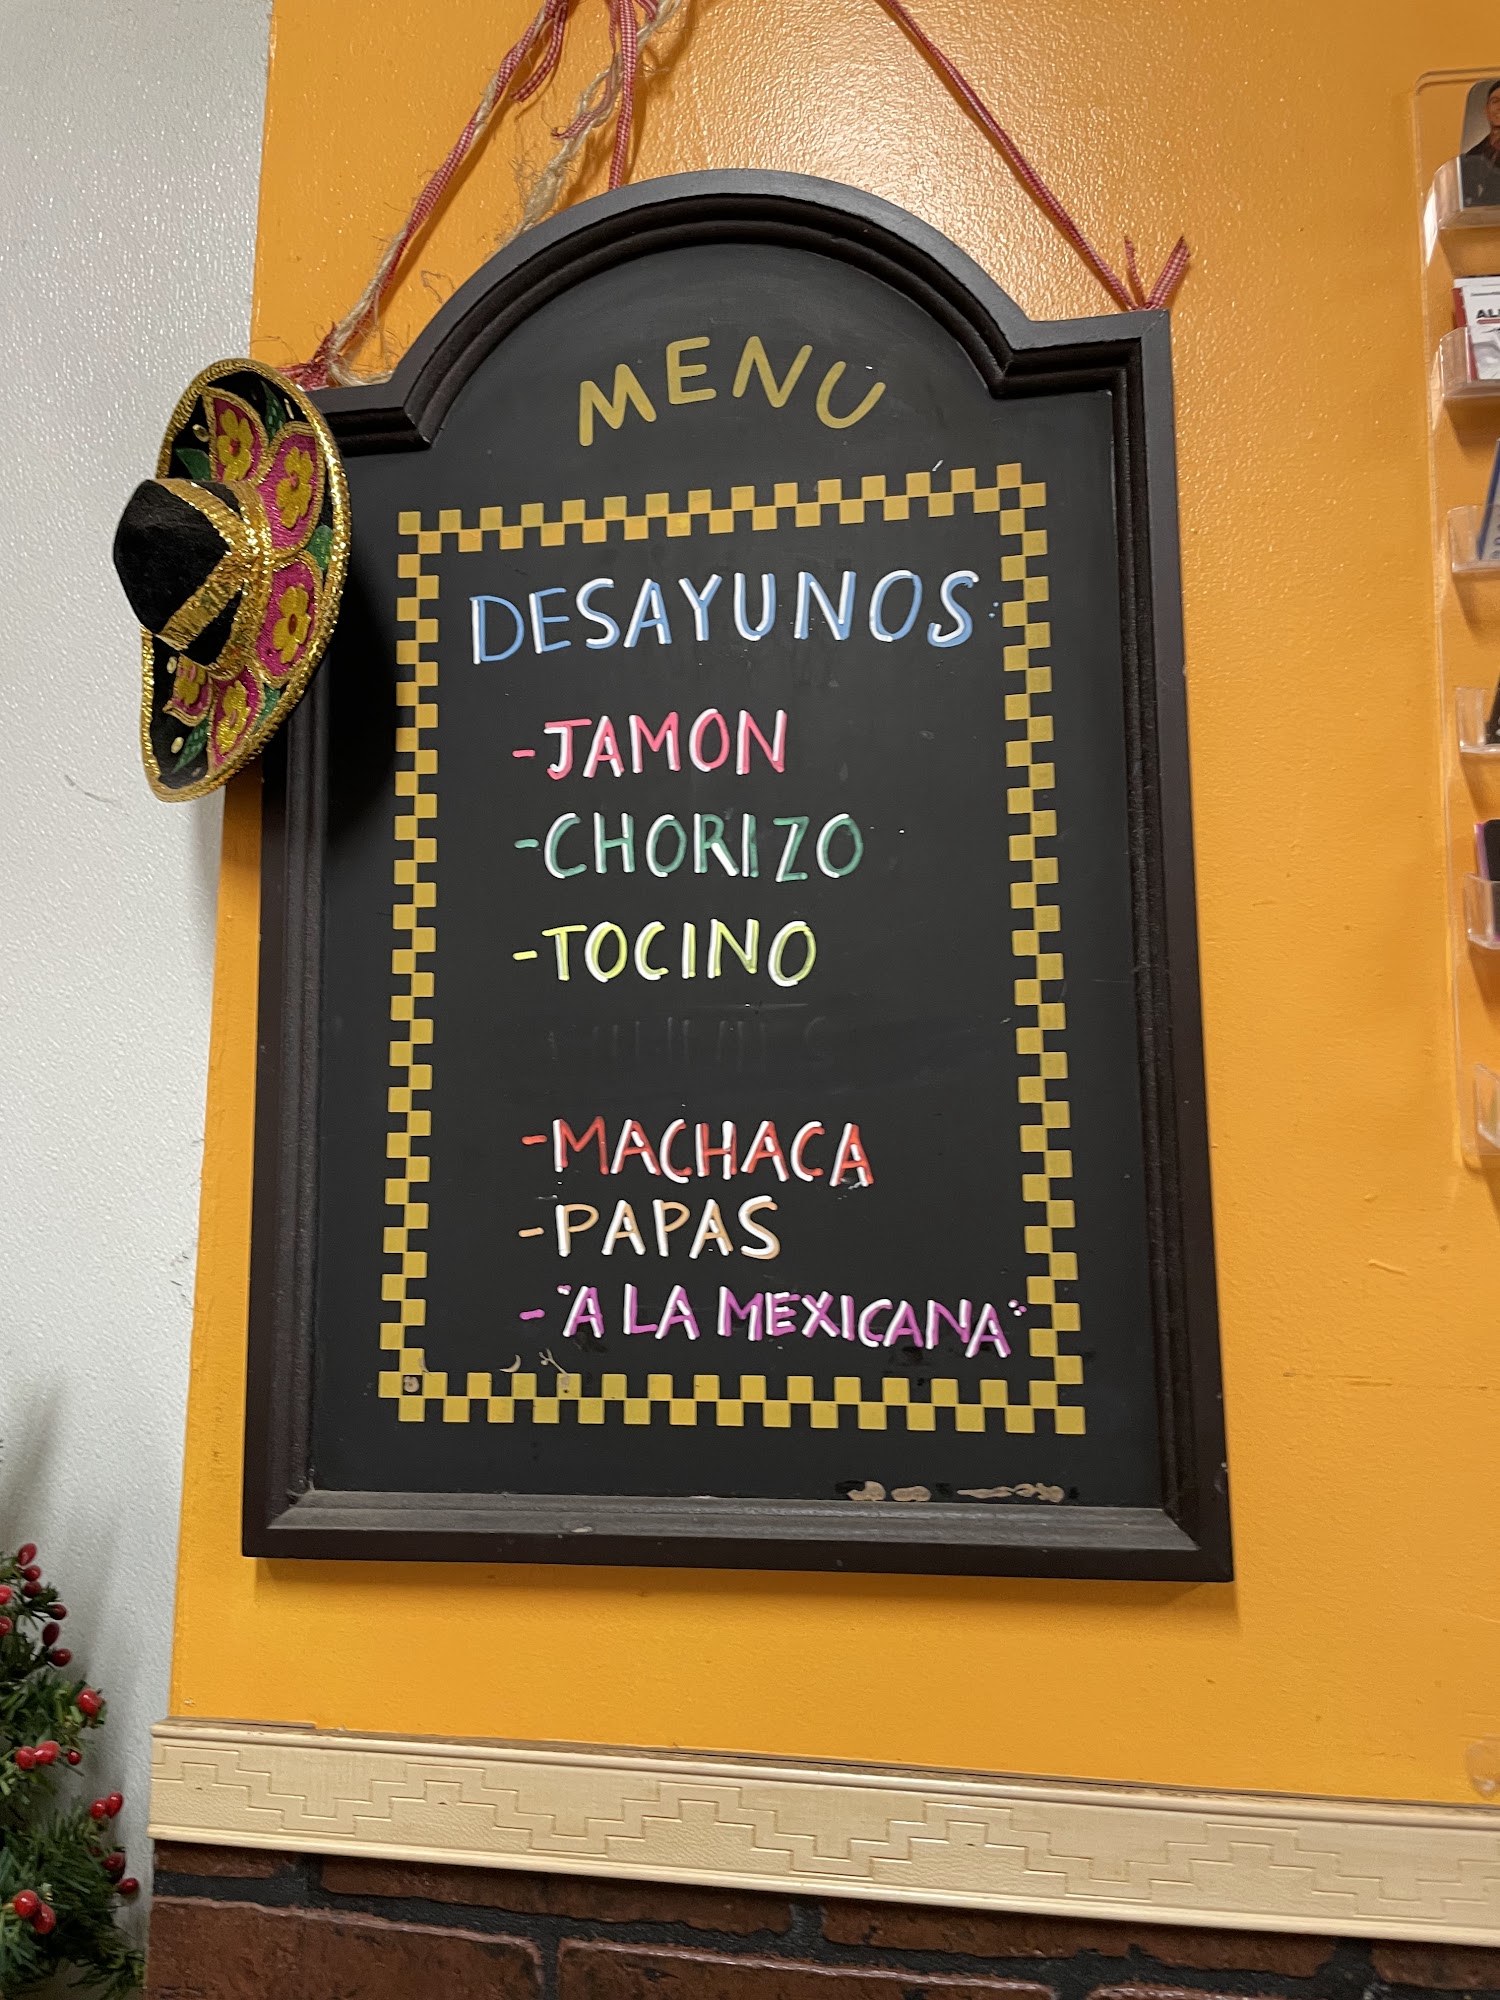 MENU
DESAYUNOS:
-JAMON
-CHORIZO
-TOCINO
-MACHACA
-PAPAS
-"A LA MEXICANA"